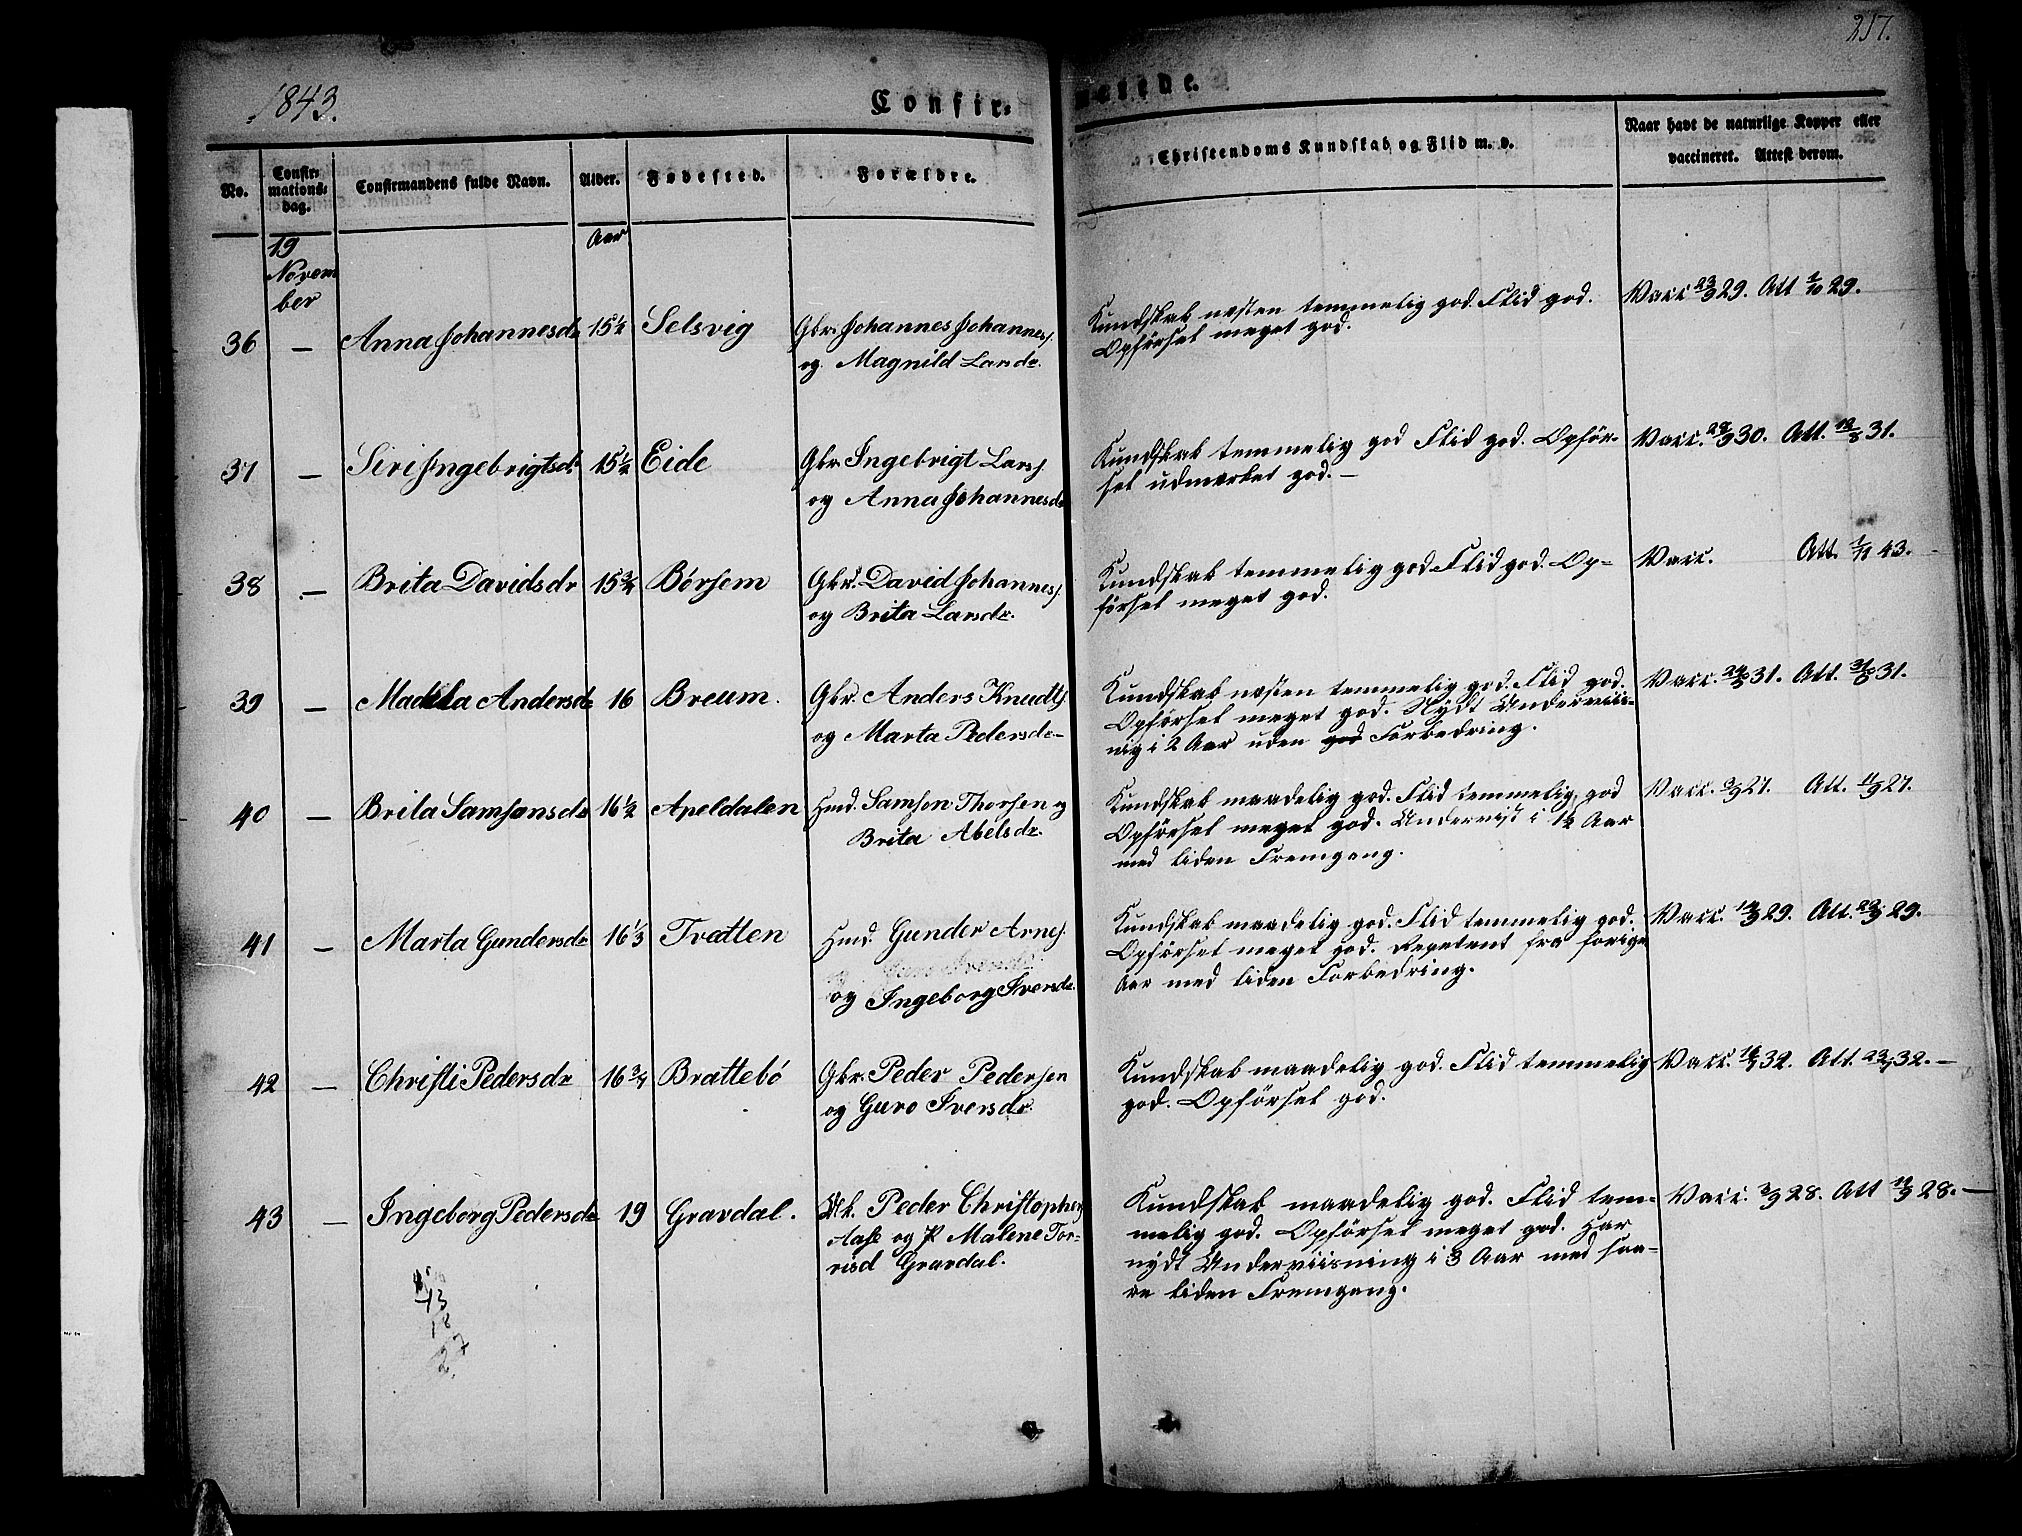 217.
1843.
Confir-
merede.
No.
Confir-
mations-
dag.
Confirmandens fulde Navn.
Alder.
Fødested.
Forældre.
Christendoms Kundskab og Flid m. v.
Naar havt de naturlige Kopper eller
vaccineret. Attest derom.
19
Novem
ber
Aar
36 — Anna Johannesdr 15 1/2 Selsvig Gbr. Johannes Johannes.
og Magnild Larsdr.
Kundskab næsten temmelig god. Flid god.
Opførsel meget god.
Vacc 23/9 29. Att 1/10 29.
37 — Siri Ingebrigtsdr 15 1/2 Eide Gbr Ingebrigt Lars.
og Anna Johannesdr
Kundskab temmelig god Flid god. Opfør-
sel udmerket god. —
Vacc. 29/9 30. Att. 12/8 31.
38 — Brita Davidsdr 15 3/4 Börsem Gbr. David Johannes.
og Brita Larsdr.
Kundskab temmelig god Flid god. Op-
førsel meget god.
Vacc. Att. 1/11 43.
39 — Madela Andersdr 16 Breum. Gbr. Anders Knudts.
og Marta Pedersdr
Kundskab næsten temmelig god. Flid god.
Opførsel meget god. Nydt Underviis-
nig i 2 Aar uden god Forbedring.
Vacc. 24/8 31. Att. 31/8 31.
40 — Brita Samsonsdr 16 1/2 Apeldalen Hmd. Samson Thorsen og
Brita Abelsdr.
Kundskab maadelig god. Flid temmelig god
Opførsel meget god. Undervist i 1 1/2 Aar
med liden Fremgang.
Vacc. 3/9 27. Att. 11/9 27.
41 — Marta Gundersdr 16 1/3 Tvedten Hmd. Gunder Arnes.
og Ingeborg Iversdr.
Kundskab maadelig god. Flid temmelig god.
Opførsel meget god. Repetent fra forige
Aar med liden Forbedring.
Vacc. 14/9 29. Att. 22/9 29.
42 — Christi Pedersdr 16 3/4 Brattebö Gbr. Peder Pedersen
og Guro Iversdr.
Kundskab maadelig god. Flid temmelig
god. Opførsel god.
Vacc. 32. Att. 32. —
43 — Ingeborg Pedersdr 19 Gravdal. Uk. Peder Christophers
Aase og P Malene Tor-
risd Gravdal.
Kundskab maadelig god. Flid tem-
melig god. Opførsel meget god. Har
nydt Underviisning i 3 Aar med saa-
re liden Fremgang.
Vacc. 3/9 28. Att 12/9 28. —
43
18
27